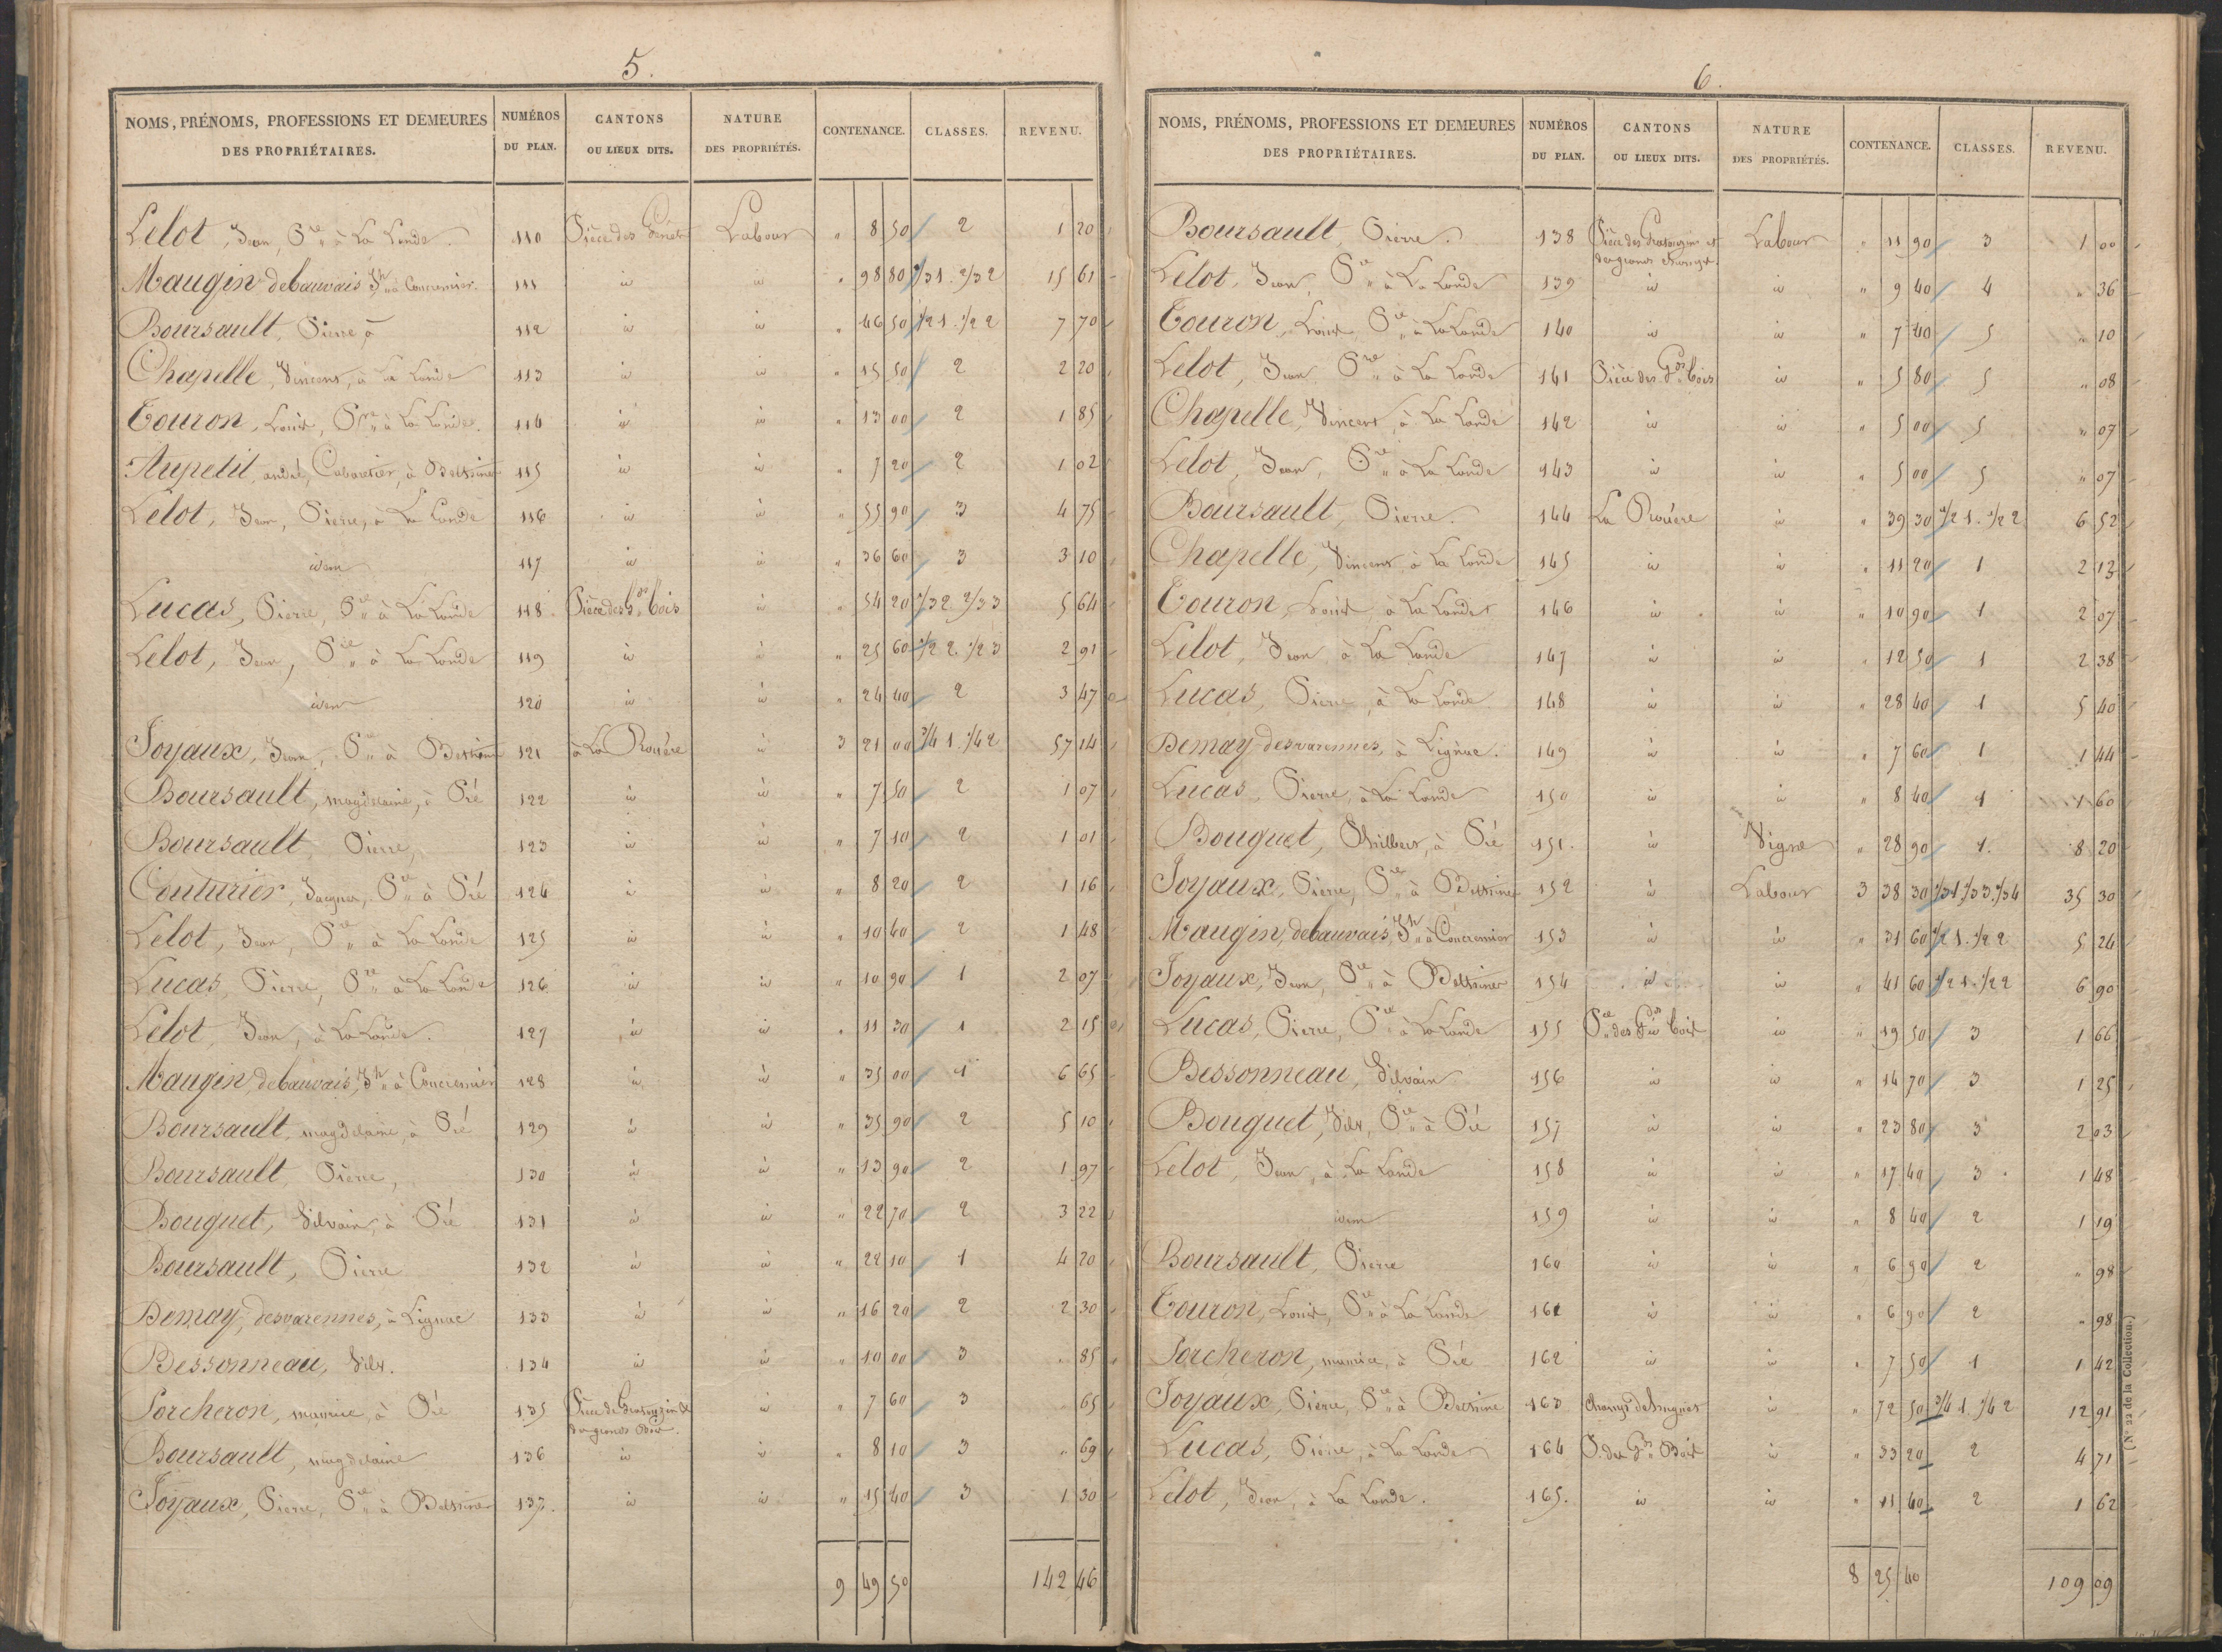 5.
NOMS, PRÉNOMS, PROFESSIONS ET DEMEURES DES PROPRIÉTAIRES. NUMÉROS DU PLAN. CANTONS OU LIEUX DITS. NATURE DES PROPRIÉTÉS. CONTENANCE. CLASSES. REVENU.
Lelot, Jean, Pre à La Lande. 110 Pièce des Genets Labour " 8 50 2 1 20
Maugin debauvais Jh à Concremier. 111 id id " 98 80 1/3 1. 2/3 2 15 61
Boursault, Pierre, à 112 id id " 46 50 1/2 1. 1/2 2 7 70
Chapelle, Vincent, à La Lande 113 id id " 15 50 2 2 20
Touron, Louis, Pre à La Lande. 114 id id " 13 00 2 1 85
Aupetit, andré, Cabaretier, à 115 id id " 7 20 2 1 02
Lelot, Jean, Pierre, à La Lande 116 id id " 55 90 3 4 75
idem 117 id id " 36 60 3 3 10
Lucas, Pierre, Pre à La Lande 118 Pièce des gds bois id " 54 20 1/3 2 2/3 3 5 64
Lelot, Jean, Pre à La Lande 119 id id " 25 60 1/2 2. 1/2 3 2 91
idem 120 id id " 24 40 2 3 47
Joyaux, Jean, Pre à 121 à La Rouére id 3 21 00 3/4 1. 1/4 2 57 14
Boursault, magdelaine, à Pié 122 id id " 7 50 2 1 07
Boursault, Pierre, 123 id id " 7 10 2 1 01
Couturier, Jacques, Pre à Pié 124 id id " 8 20 2 1 16
Lelot, Jean, Pre à La Lande 125 id id " 10 40 2 1 48
Lucas, Pierre, Pre à La Lande 126 id id " 10 90 1 2 07
Lelot, Jean, à La Lande. 127 id id " 11 30 1 2 15
Maugin, debauvais, Jh à Concremier 128 id id " 35 00 1 6 65
Boursault, magdelaine, à Pié 129 id id " 35 90 2 5 10
Boursault, Pierre, 130 id id " 13 90 2 1 97
Bouquet, Silvain, à Pié 131 id id " 22 70 2 3 22
Boursault, Pierre 132 id id " 22 10 1 4 20
Demay, desvarennes, à Lignac 133 id id " 16 20 2 2 30
Bessonneau, Silv. 134 id id " 10 00 3 " 85
Porcheron, maurice, à Pié 135 Pièce de
des grands Bois. id " 7 60 3 " 65
Boursault, magdelaine 136 id id " 8 10 3 " 69
Joyaux, Pierre, Pre à 137. id id " 15 40 3 1 30
9 49 50 142 46
6.
NOMS, PRÉNOMS, PROFESSIONS ET DEMEURES DES PROPRIÉTAIRES. NUMÉROS DU PLAN. CANTONS OU LIEUX DITS. NATURE DES PROPRIÉTÉS. CONTENANCE. CLASSES. REVENU.
Boursault, Pierre. 138 Pièce des
des grands Labour " 11 90 3 1 00
Lelot, Jean, Pre à La Lande 139 id id " 9 40 4 " 36
Touron, Louis, Pre à La Lande 140 id id " 7 40 5 " 10
Lelot, Jean, Pre à La Lande 141 Pièce des Gds bois id " 5 80 5 " 08
Chapelle, Vincent, à La Lande 142 id id " 5 00 5 " 07
Lelot, Jean, Pre à La Lande 143 id id " 5 00 5 " 07
Boursault, Pierre. 144 La Rouére id " 39 30 1/2 1. 1/2 2 6 52
Chapelle, Vincent, à La Lande 145 id id " 11 20 1 2 13
Touron, Louis, à La Lande 146 id id " 10 90 1 2 07
Lelot, Jean à La Lande 147 id id " 12 50 1 2 38
Lucas, Pierre, à La Lande. 148 id id " 28 40 1 5 40
Demay desvarennes, à Lignac. 149 id id " 7 60 1 1 44
Lucas, Pierre, à La Lande 150 id id " 8 40 1 1 60
Bouquet, Philbert, à Pié 151. id Vigne " 28 90 1. 8 20
Joyaux, Pierre, Pre à 152 id Labour 3 38 30 1/3 1. 1/3 3. 1/3 4 35 30
Maugin, debauvais, Jh à Concremier 153 id id " 31 60 1/2 1. 1/2 2 5 24
Joyaux, Jean, Pre à 154 id id " 41 60 1/2 1. 1/2 2 6 90
Lucas, Pierre, Pre à La Lande 155 Pce des Gds bois id " 19 50 3 1 66
Bessonneau, Silvain 156 id id " 14 70 3 1 25
Bouquet, Silv, Pre à Pié 157 id id " 23 80 3 2 03
Lelot, Jean, à La Lande 158 id id " 17 40 3 1 48
idem 159 id id " 8 40 2 1 19
Boursault, Pierre 160 id id " 6 90 2 " 98
Touron, Louis, Pre à La Lande 161 id id " 6 90 2 " 98
Porcheron, maurice, à Pié 162 id id " 7 50 1 1 42
Joyaux, Pierre, Pre à 163 Champs de id " 72 50 3/4 1. 1/4 2 12 91
Lucas, Pierre, à La Lande 164 P. des Gds Bois id " 33 20 2 4 71
Lelot, Jean, à La Lande. 165. id id " 11 40 2 1 62
8 25 40 109 09
(N° 22 de la Collection.)